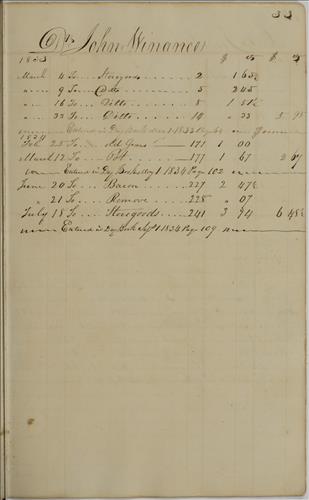 33
Dr. John Winance
1833 $ cts $ cts
March 4 To .... Storegoods ...... 2 1 65
" 9 To .... Ditto ...... 5 2 45
" 16 To .... Ditto ...... 8 1 51½
" 23 To .... Ditto ...... 10 " 33 5 95
Entered in Day Book 1833 Page
1834
Feb 25 To .... 171 1 00
March 12 To .... ...... 177 1 67 2 67
Entered in Dy Book May 1 1834 Page 102
June 20 To .... Bacon ...... 227 2 47½
" 21 To .... Remove ...... 228 " 07
July 18 To .... Storegoods ..... 241 3 94 6 48½
Entered in Day Book Sept 1 1834 Page 109